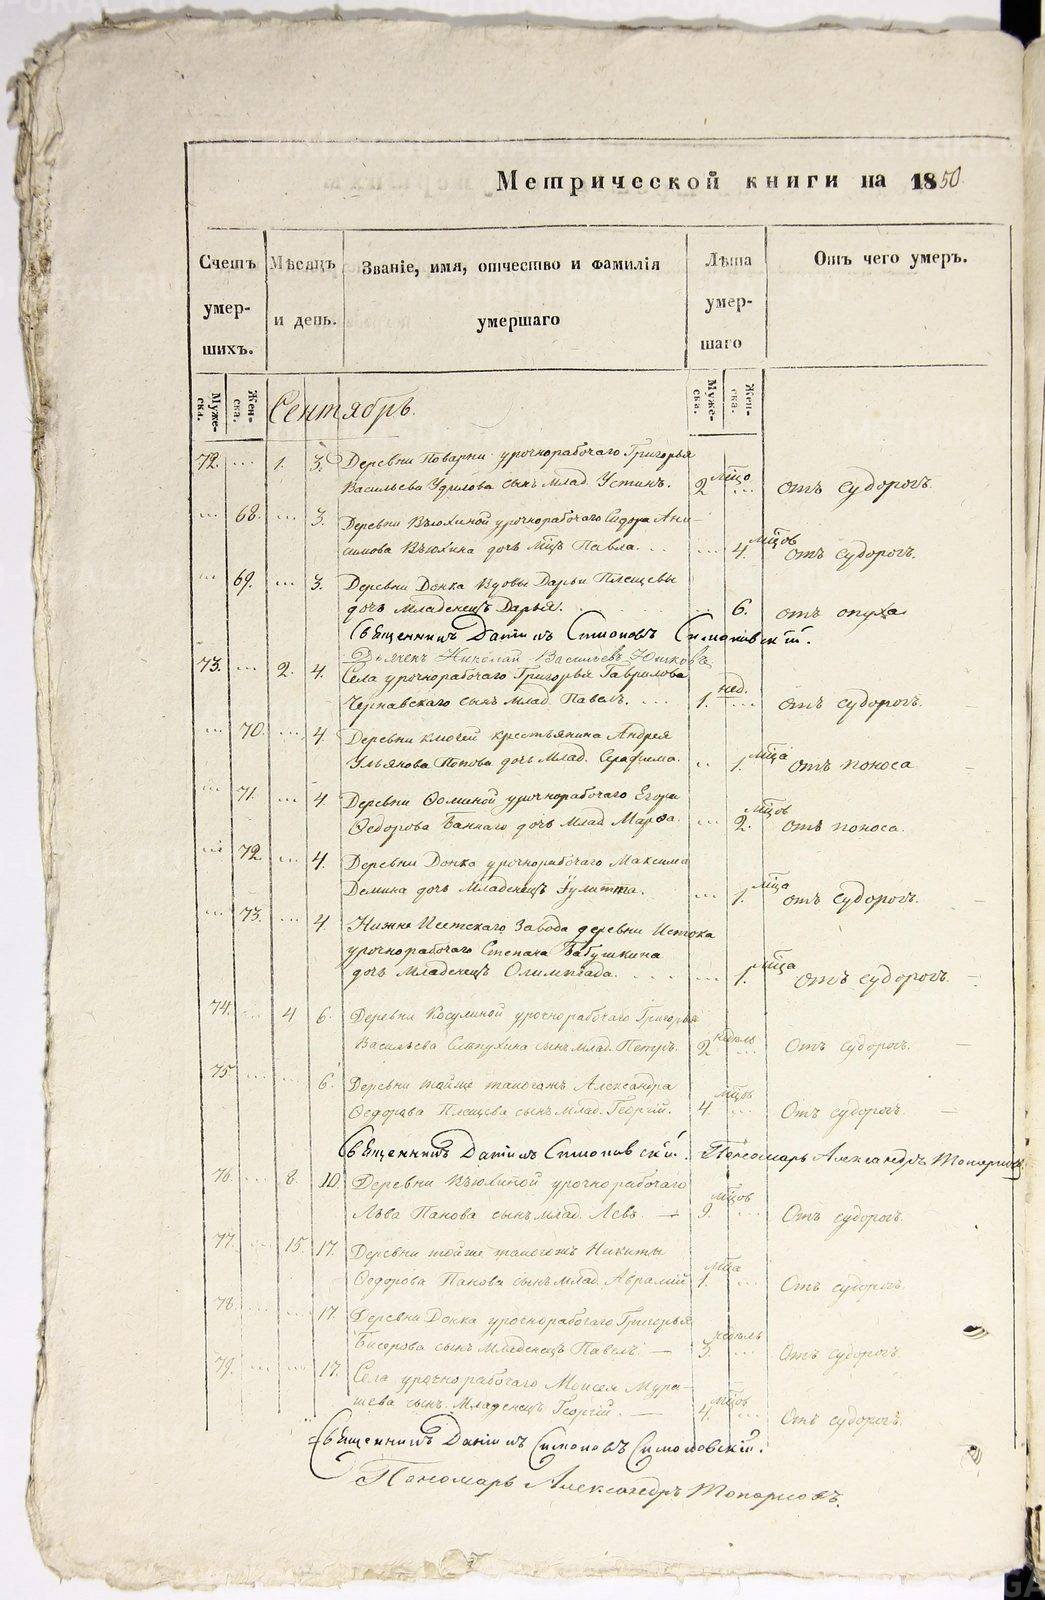 Метрической книги на 1850.
Счетъ умер- шихъ.
Мѣсяцъ и день.
Званіе, имя, отчество и фамилія умершаго
Лѣта умер- шаго
Отъ чего умеръ.
Муже- ска. Жен- ска. Сентябрь. Муже- ска. Жен- ска.
72. ... 1. 3. Деревни Поварни урочнорабочаго Григорья
Васильева Удилова сынъ млад. Устинъ. 2 мѣцо ... отъ судорогъ.
... 68. ... 3. Деревни Вьюхиной урочнорабочаго Сидора Ани-
симова Вьюхина дочь мцъ Павла. ... 4. мцовъ отъ судорогъ.
... 69. ... 3. Деревни Донка вдовы Дарьи Плещевы
дочь младенецъ Дарья. ... 6. отъ опуха
Священникъ Даніилъ Симоновъ Симановскій.
Дьяченъ Николай Васильевъ Юшковъ
73. ... 2. 4. Села урочнорабочаго Григорья Гаврилова
Чернавскаго сынъ млад. Павелъ. ... 1. нед. ... отъ судорогъ.
... 70. ... 4. Деревни ключей крестьянина Андрея
Ульянова Попова дочь млад. Серафима. ... 1. мца отъ поноса
... 71. ... 4. Деревни Фоминой урочнорабочаго Егора
Федорова Баннаго дочь млад. Марфа. ... 2. мцовъ отъ поноса.
... 72. ... 4. Деревни Донка урочнорабочаго Максима
Демина дочь младенецъ Іулитта. ... 1. мца отъ судорогъ.
... 73. ... 4. Нижне Исетскаго Завода деревни Истока
урочнорабочаго Степана Бабушкина
дочь младенецъ Олимпіада. ... 1. мца отъ судорогъ.
74. ... 4 6. Деревни Косулиной урочнорабочаго Григорья
Васильева Слепухина сынъ млад. Петръ. 2 недѣль ... Отъ судорогъ.
75 ... ... 6. Деревни тойже таковажъ Александра
Федорова Плещева сынъ млад. Георгій. 4. мцовъ ... Отъ судорогъ.
Священникъ Даніилъ Симановскій. Пономарь Александръ Топорковъ
76. ... 8. 10. Деревни Вьюхиной урочнорабочаго
Льва Панова сынъ млад. Левъ. — 9. мцовъ ... Отъ судорогъ.
77. ... 15. 17. Деревни тойже таковожъ Никиты
Федорова Панова сынъ млад. Аврамій 1. мца ... Отъ судорогъ.
78. ... ... 17. Деревни Донка урочнорабочаго Григорья
Бисерова сынъ младенецъ Павелъ. — 3. недѣль ... Отъ судорогъ.
79. ... ... 17. Села урочнорабочаго Моисея Мура-
шева сынъ младенецъ Георгій. — 4. мцовъ ... Отъ судорогъ.
Священникъ Даніилъ Симоновъ Симоновскій.
Пономарь Александръ Топорковъ.